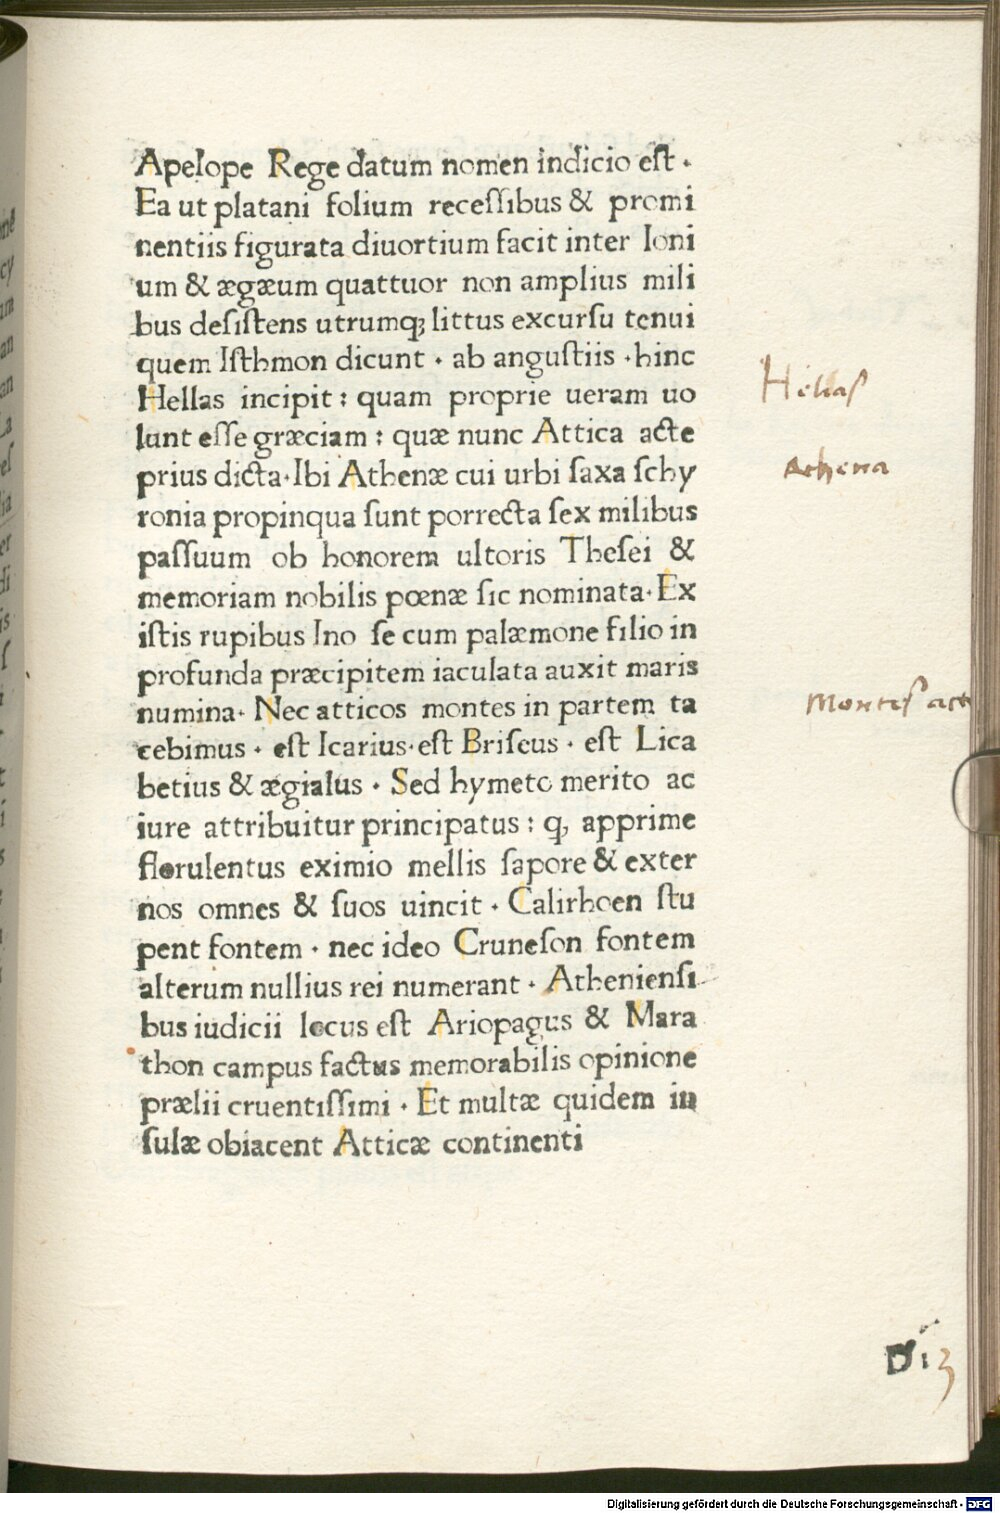 Apelope Rege datum nomen indicio eſt ·
Ea ut platani folium receſſibus & promi
nentiis figurata diuortium facit inter Ioni
um & ægæum quattuor non amplius mili
bus deſiſtens utrumq; littus excurſu tenui
quem Iſthmon dicunt · ab anguſtiis · hinc
Hellas incipit : quam proprie ueram uo
lunt eſſe græciam : quæ nunc Attica acte
prius dicta · Ibi Athenæ cui urbi ſaxa ſchy
ronia propinqua ſunt porrecta ſex milibus
paſſuum ob honorem ultoris Theſei &
memoriam nobilis pœnæ ſic nominata · Ex
iſtis rupibus Ino ſe cum palæmone filio in
profunda præcipitem iaculata auxit maris
numina · Nec atticos montes in partem ta
cebimus · eſt Icarius · eſt Briſeus · eſt Lica
betius & ægialus · Sed hymeto merito ac
iure attribuitur principatus : q, apprime
florulentus eximio mellis ſapore & exter
nos omnes & ſuos uincit · Calirhoen ſtu
pent fontem · nec ideo Cruneſon fontem
alterum nullius rei numerant · Athenienſi
bus iudicii locus eſt Ariopagus & Mara
thon campus factus memorabilis opinione
prælii cruentiſſimi · Et multæ quidem in
ſulæ obiacent Atticæ continenti
Hellaſ
Athena
Monteſ
Digitalisierung gefördert durch die Deutsche Forschungsgemeinschaft - DFG